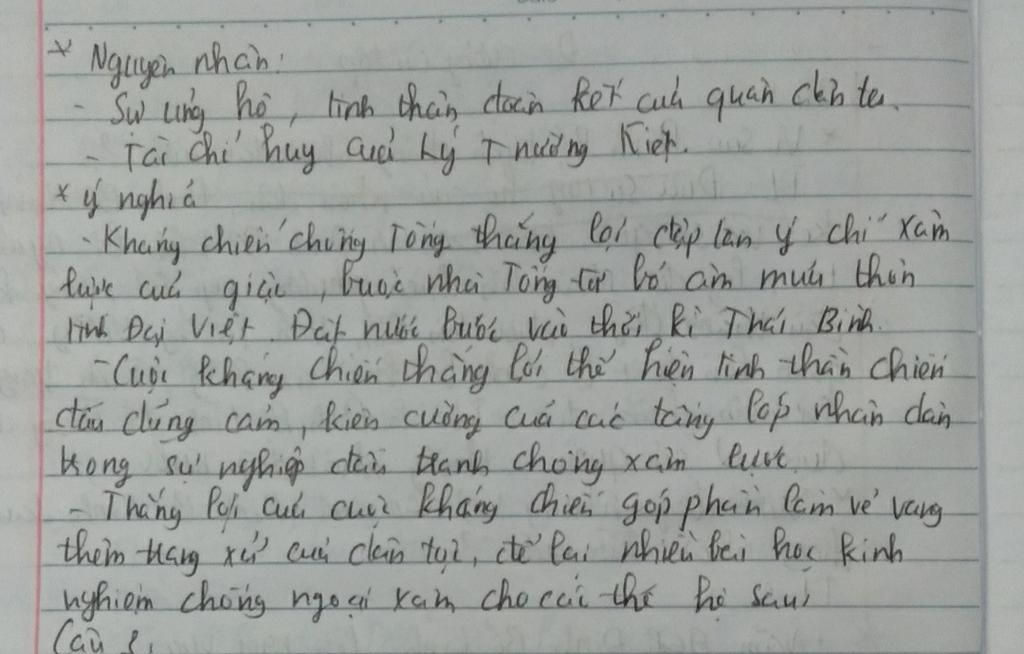 * Nguyên nhân:
- Sự ủng hộ, tinh thần đoàn kết của quân dân ta.
- Tài chỉ huy của Lý Thường Kiệt.
* ý nghĩa
- Kháng chiến chống Tống thắng lợi đập tan ý chí xâm
lược của giặc, buộc nhà Tống từ bỏ âm mưu thôn
tính Đại Việt. Đất nước bước vào thời kì Thái Bình.
- Cuộc kháng chiến thắng lợi thể hiện tinh thần chiến
đấu dũng cảm, kiên cường của các tầng lớp nhân dân
trong sự nghiệp đấu tranh chống xâm lược.
- Thắng lợi của cuộc kháng chiến góp phần làm vẻ vang
thêm trang xử của dân tộc, để lại nhiều bài học kinh
nghiệm chống ngoại xâm cho các thế hệ sau,
Câu